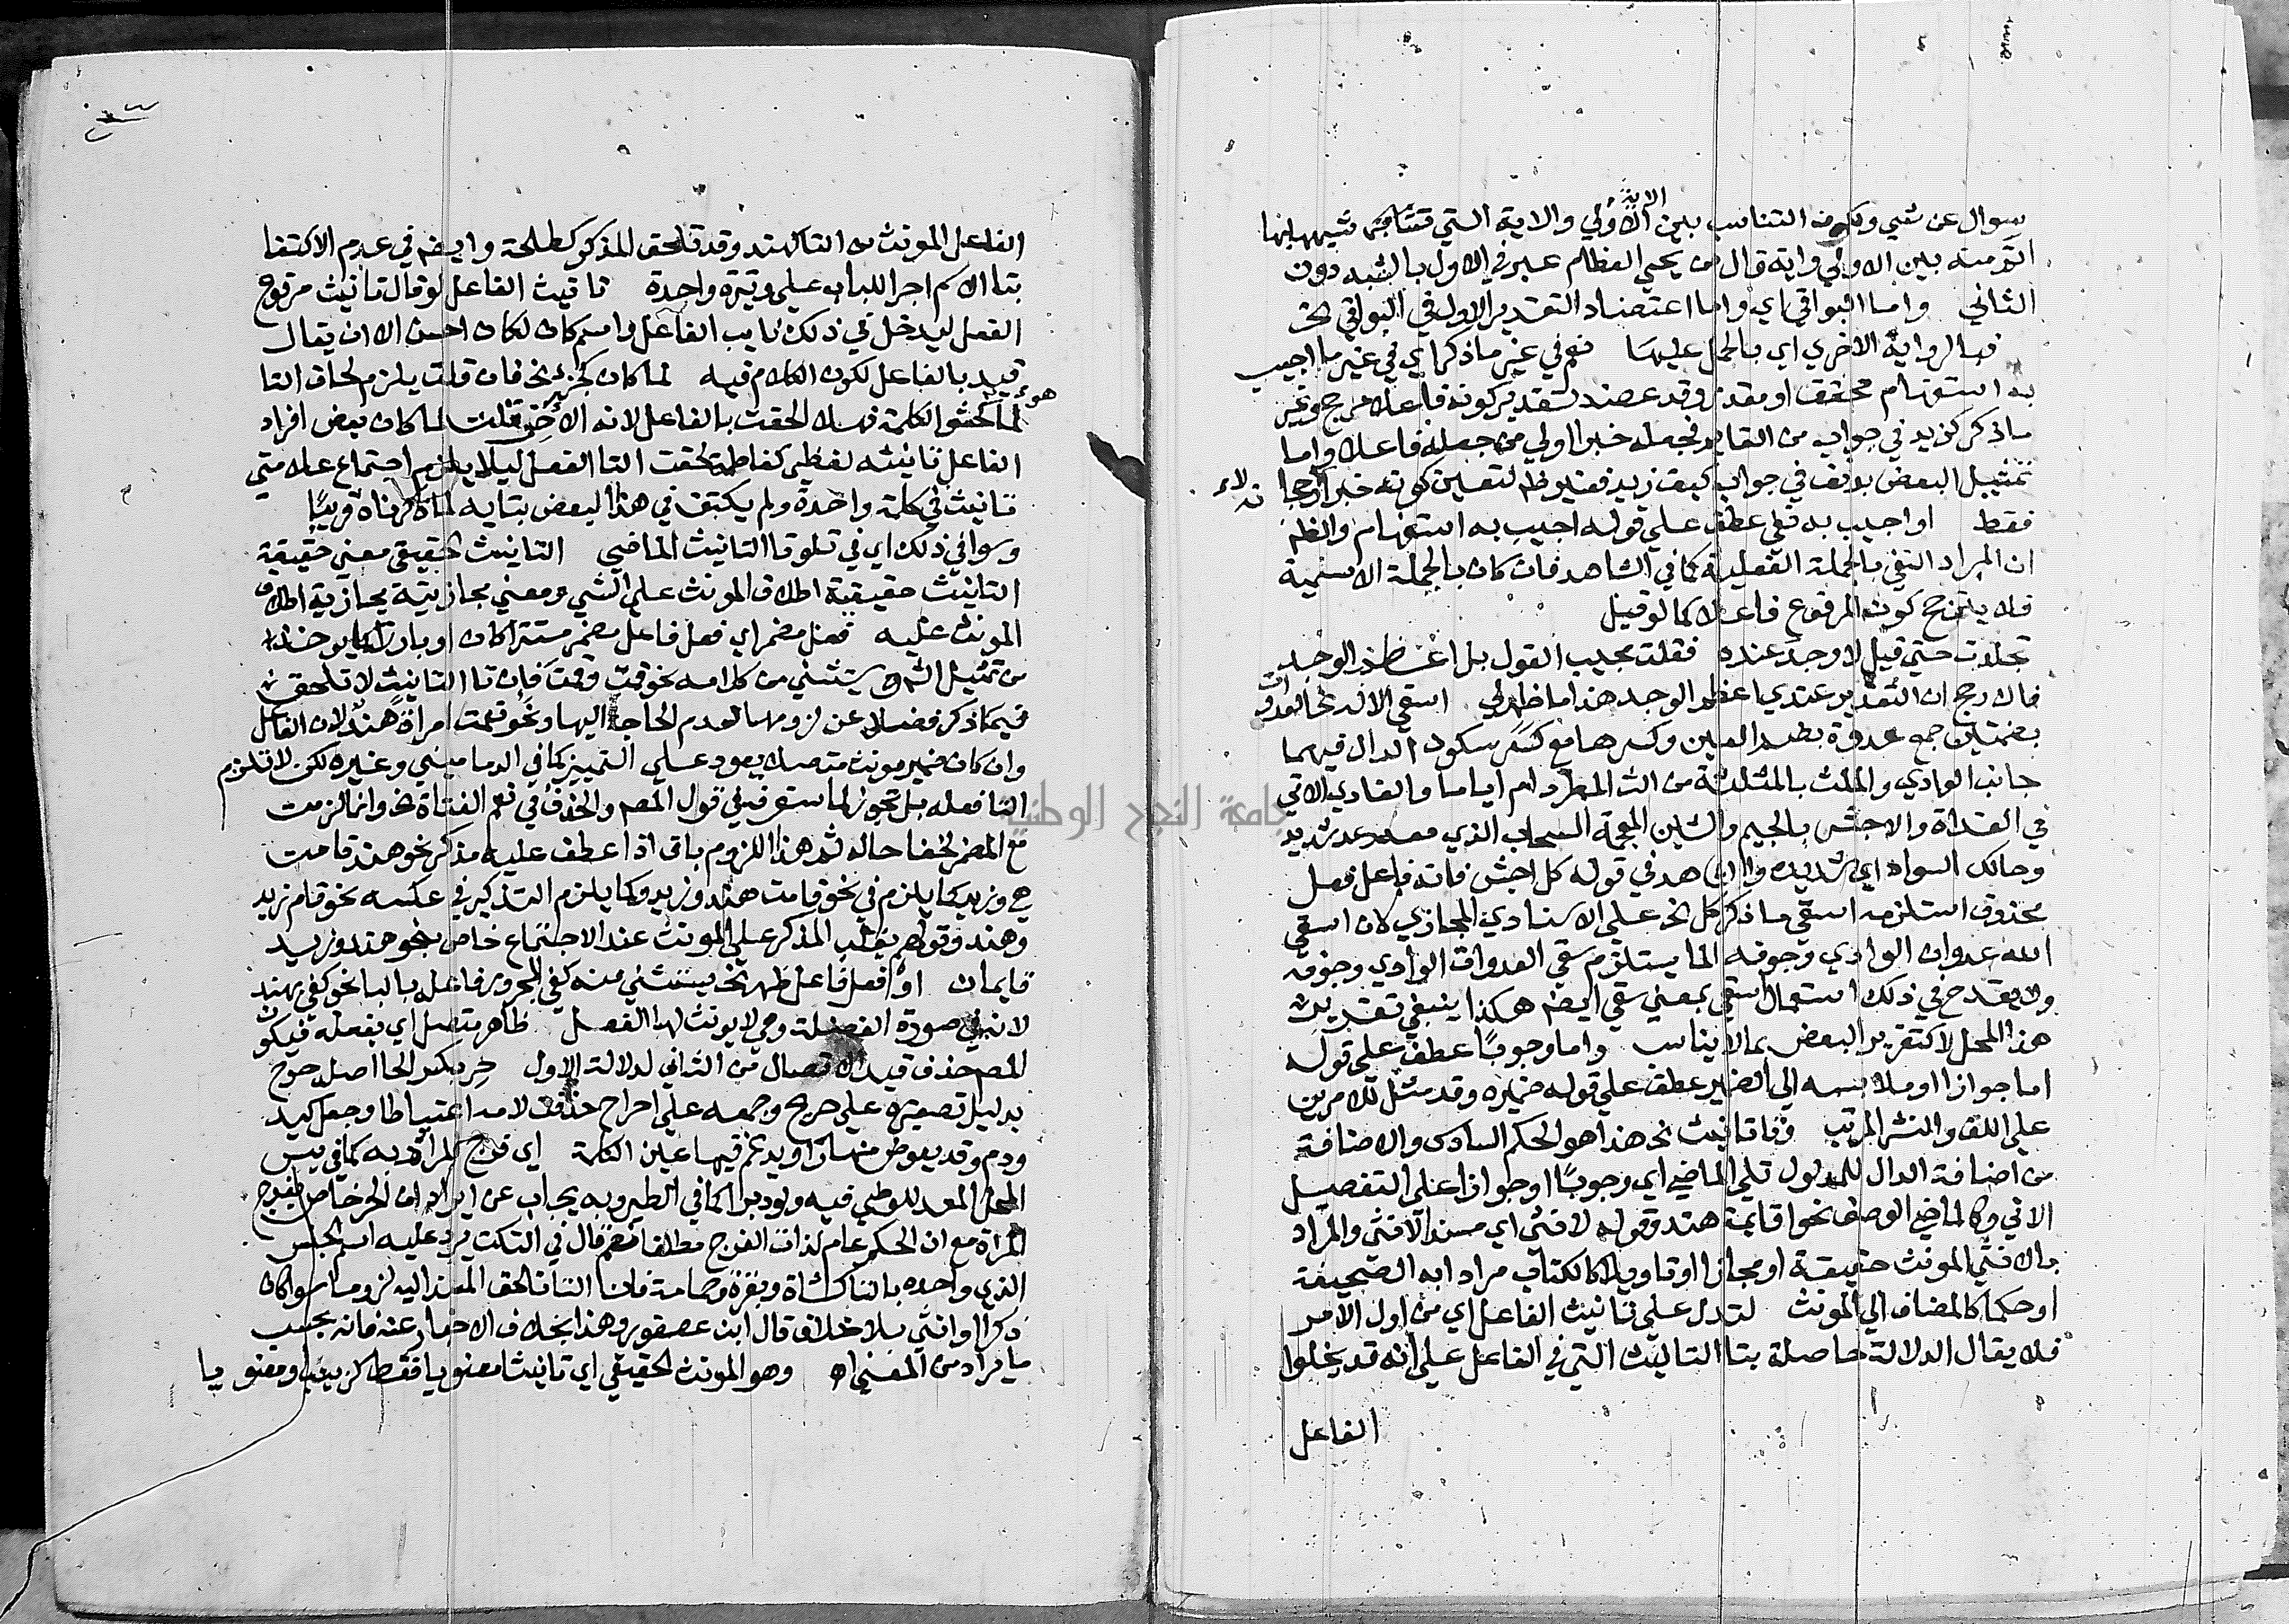 سوال عن شي ولكون التناسب بين الآية الاولي والاية التي
اتم منه بين الاولي واية قال من يحيي العظام عبر في الاول بالشبه دون
الثاني واما البواقي اي واما اعتضاد التقدير الاول في البواقي الخ
فبالرواية الاخري اي بالحمل عليها نعم في غير ما ذكر اي في غير ما اجيب
به استفهام محقق او مقدر وقد عضد تقدير كونه فاعلا مرجح وغير
ما ذكر كزيد في جواب من القايم فجعله خبرا اولي من جعله فاعلا واما
تمثيل البعض بزيد في جواب كيف زيد فغير ظ لتعين كونه خبرا
فقط او اجيب به نفي عطف علي قوله اجيب به استفهام والظ
ان المراد النفي بالجملة الفعلية كما في الشاهد فان كان بالجملة الاسمية
فلا يترجح كون المرفوع فاعلا كما لو قيل
تجلدت حتي قيل لا وجد عنده فقلت مجيب القول بل اعظم الوجد
فان رجح ان التقدير عندي اعظم الوجد هذا ما ظهر لي اسقي الاله عدوات
بضمتين جمع عدوة بضم العين وكسرها مع سكون الدال فيهما
جانب الوادي والملث بالمثلثة من الث المطر دام اياما والغادي الاتي
في الغداة والاجش بالجيم والشين المعجمة السحاب الذي معه رعد شديد
وحالك السواد اي شديده والشاهد في قوله كل اجش فانه فاعل فعل
محذوف استلزمه اسقي ما ذكر كل الخ علي الاسنادي المجازي لان اسقي
الله عدوات الوادي وجوفه الما يستلزم سقي العدوات الوادي وجوفه
ولا يقدح في ذلك استعمال اسقي بمعني سقي ايضا هكذا ينبغي تقرير
هذا المحل لا كتقرير البعض بما لا يناسب واما وجوبًا عطف علي قوله
اما جوازا او ملابسه الي الضمير عطف علي قوله ضميره وقد مثل للامرين
علي اللف والنشر المرتب وتا تانيث الخ هذا هو الحكم السادس والاضافة
من اضافة الدال للمدلول تلي الماضي اي وجوبًا او جوازا علي التفصيل
الاتي وكالماضي الوصف نحو اقايمة هند وقوله لانثي اي مسند الانثي والمراد
بالانثي المونث حقيقة او مجازا او تاويلا كالكتاب مرادا به الصحيفة
او حكما كالمضاف الي المونث لتدل علي تانيث الفاعل اي من اول الامر
فلا يقال الدلالة حاصلة بتا التانيث التي في الفاعل علي انه قد يخلوا
الفاعل
الفاعل المونث من التا كهند وقد تلحق المذكر كطلحة وايضا في عدم الاكتفا
بتا الاسم اجرا للباب علي وتيرة واحدة تانيث الفاعل لو قال تانيث مرفوع
الفعل ليدخل في ذلك نايب الفاعل واسم كان لكان احسن الا ان يقال
قيد بالفاعل لكون الكلام فيه لما كان كجزء الخ فان قلت يلزم لحاق التا
لما هو كحشو الكلمة فهلا لحقت بالفاعل لانه الاخر قلت لما كان بعض افراد
الفاعل تانيثه لفظي كفاطمة لحقت التا الفعل ليلا يلزم اجتماع علامتي
تانيث في كلمة واحدة ولم يكتف في هذا البعض بتايه لما ذكرناه قريبًا
وسوا في ذلك اي في تلو تا التانيث الماضي التانيث الحقيقي معني حقيقية
التانيث حقيقية اطلاق المونث علي الشي ومعني مجازيته مجازية اطلاق
المونث عليه فعل مضمر اي فعل فاعل مضمر مستترا كان او بارزا كما يوخذ
من تمثيل الش ويستثني من كلامه نحو قمت وقمت فان تا التانيث لا تلحق
فيما ذكر فضلا عن لزومها لعدم الحاجة اليها ونحو نعمت امراة هند لان الفاعل
وان كان ضمير مونث متصلا يعود علي التمييز كما في الدماميني وغيره لكن لا تلزم
التا فعله بل تجوز لما ستعرفه في قول المص والحذف في نعم الفتاة الخ وانما لزمت
مع المضمر لخفا حاله ثم هذا اللزوم باق اذا عطف عليه مذكر نحو هند قامت
هي وزيد كما يلزم في نحو قامت هند وزيد وكما يلزم التذكير في عكسه نحو قام زيد
وهند وقولهم يغلب المذكر علي المونث عند الاجتماع خاص بنحو هند وزيد
قايمان او فعل فاعل ظهر الخ يستثني منه كفي المجرور فاعله بالبا نحو كفي بهند
لانه في صورة الفضلة وهي لا يونث لها الفعل ظاهر متصل اي بفعله فيكون
المص حذف قيد الاتصال من الثاني لدلالة الاول حر بكسر الحا اصله حرح
بدليل تصغيره علي حريح وجمعه علي احراح حذفت لامه اعتباطا وجعل كيد
ودم وقد يعوض منها را ويدغم فيها عين الكلمة اي فرج المراد به كما في يس
المحل المعد للوطي فيه ولو دبرا كما في الطير وبه يجاب عن ايراد ان الحر خاص بفرج
المراة مع ان الحكم عام لذات الفرج مطلقا نعم قال في النكت يرد عليه اسم الجنس
الذي واحده بالتا كشاة وبقرة وحمامة فان التا تلحق المسند اليه لزوما سوا كان
ذكرا او انثي بلا خلاف قال ابن عصفور وهذا بخلاف الاخبار عنه فانه بحسب
ما يراد من المعني اه وهو المونث الحقيقي اي تانيثا معنويا فقط كزينب او معنويا
جامعة النجاح الوطنية